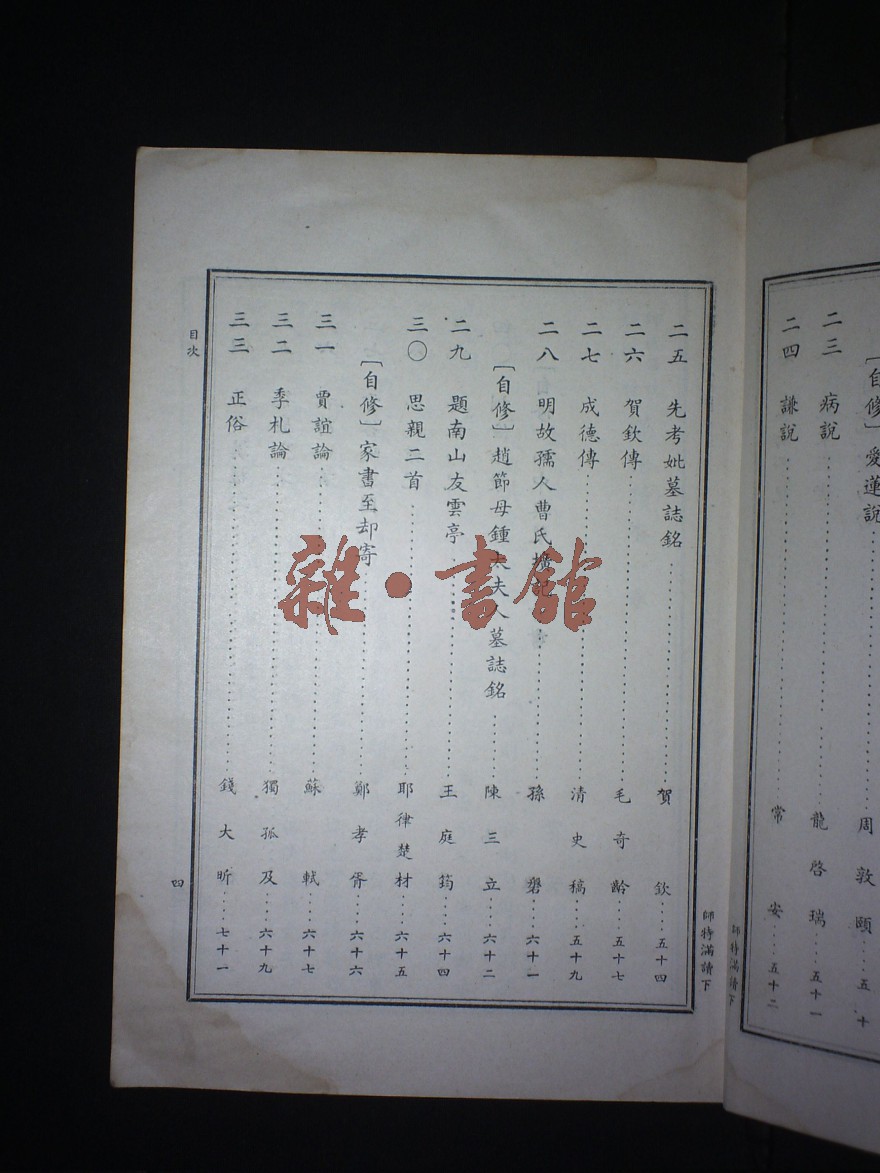 〔自修〕愛蓮說……周敦頤…五十
二三 病說……龍啓瑞…五十一
二四 謙說……常安…五十二
師特滿讀下
師特滿讀下
二五 先考妣墓誌銘……賀欽…五十四
二六 賀欽傳……毛奇齡…五十七
二七 成德傳……清史稿…五十九
二八 明故孺人曹氏壙記……孫磐…六十一
〔自修〕趙節母鍾太夫人墓誌銘……陳三立…六十二
二九 題南山友雲亭……王庭筠…六十四
三〇 思親二首……耶律楚材…六十五
〔自修〕家書至却寄……鄭孝胥…六十六
三一 賈誼論……蘇軾…六十七
三二 季札論……獨孤及…六十九
三三 正俗……錢大昕…七十一
目次 四
雜·書館